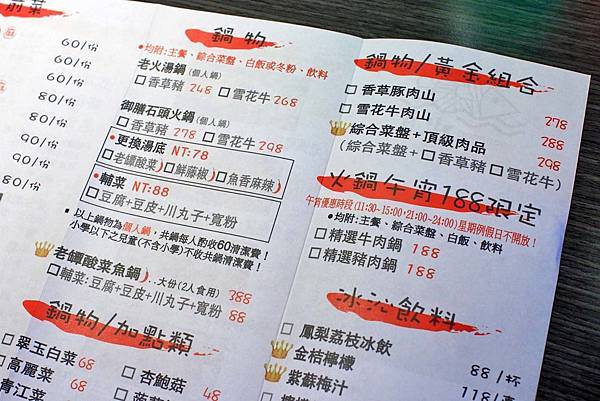 前菜
60/份
60/份
80/份
80/份
90/份
80/份
80/份
鍋物
•均附:主餐、綜合菜盤、白飯或冬粉、飲料
老火湯鍋(個人鍋)
□香草豬 248 □雪花牛 268
御膳石頭火鍋(個人鍋)
□香草豬 278 □雪花牛 298
•更換湯底 NT:78
□老罈酸菜 □鮮藤椒 □魚香麻辣
•輔菜 NT:88
□豆腐+豆皮+川丸子+寬粉
•以上鍋物為個人鍋，共鍋每人酌收60清潔費！
小學以下之兒童(不含小學)不收共鍋清潔費！
老罈酸菜魚鍋..大份(2人食用) 388
□輔菜:豆腐+豆皮+川丸子+寬粉 88
鍋物/加點類
翠玉白菜 68
高麗菜 68
青江菜
□杏鮑菇 48
鍋物/黃金組合
□香草豚肉山 278
□雪花牛肉山 288
綜合菜盤+頂級肉品 298
(綜合菜盤+□香草豬□雪花牛)
火鍋午宵188限定
午宵優惠時段(11:30~15:00,21:00~24:00)星期例假日不開放！
•均附:主餐、綜合菜盤、白飯、飲料
□精選牛肉鍋 188
□精選豬肉鍋 188
冰沁飲料
□鳳梨荔枝冰飲 88/杯
金桔檸檬
紫蘇梅汁 118/壺